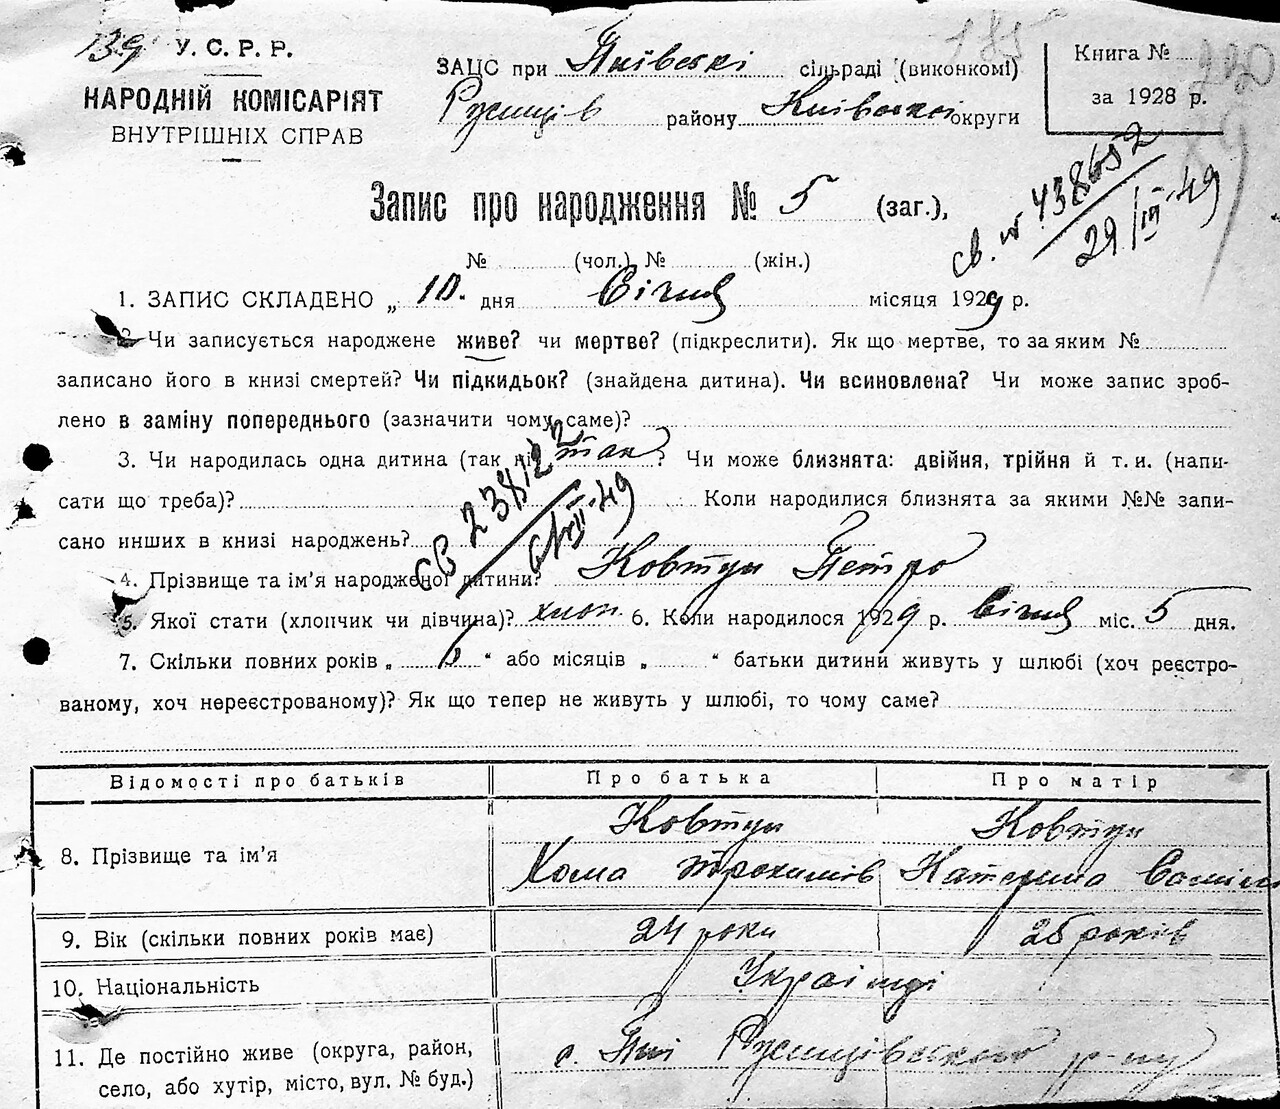 139 У. С. Р. Р.
НАРОДНІЙ КОМІСАРІЯТ
ВНУТРІШНІХ СПРАВ
185
ЗАЦС при Пнівські сільраді (виконкомі)
району Київської округи
Книга №
за 1928 р.
Запис про народження № 5 (заг.),
св. № 438652
29/III-49
№ (чол.) № (жін.)
1. ЗАПИС СКЛАДЕНО „ 10. дня Січня місяця 1929 р.
2. Чи записується народжене живе? чи мертве? (підкреслити). Як що мертве, то за яким №
записано його в книзі смертей? Чи підкидьок? (знайдена дитина). Чи всиновлена? Чи може запис зроб-
лено в заміну попереднього (зазначити чому саме)?
3. Чи народилась одна дитина (так ні) так? Чи може близнята: двійня, трійня й т. и. (напи-
сати що треба)? Коли народилися близнята за якими №№ запи-
сано инших в книзі народжень?
св 238122
4. Прізвище та ім’я народженої дитини? Ковтун Петро
5. Якої стати (хлопчик чи дівчина)? хлоп. 6. Коли народилося 1929 р. Січня міс. 5 дня.
7. Скільки повних років „ “ або місяців „ “ батьки дитини живуть у шлюбі (хоч реєстро-
ваному, хоч нереєстрованому)? Як що тепер не живуть у шлюбі, то чому саме?
Відомості про батьків Про батька Про матір
8. Прізвище та ім’я Ковтун Хома Трохимів Ковтун Катерина
9. Вік (скільки повних років має) 24 роки 25 років
10. Національність Українці
11. Де постійно живе (округа, район,
село, або хутір, місто, вул. № буд.) с. р-ну